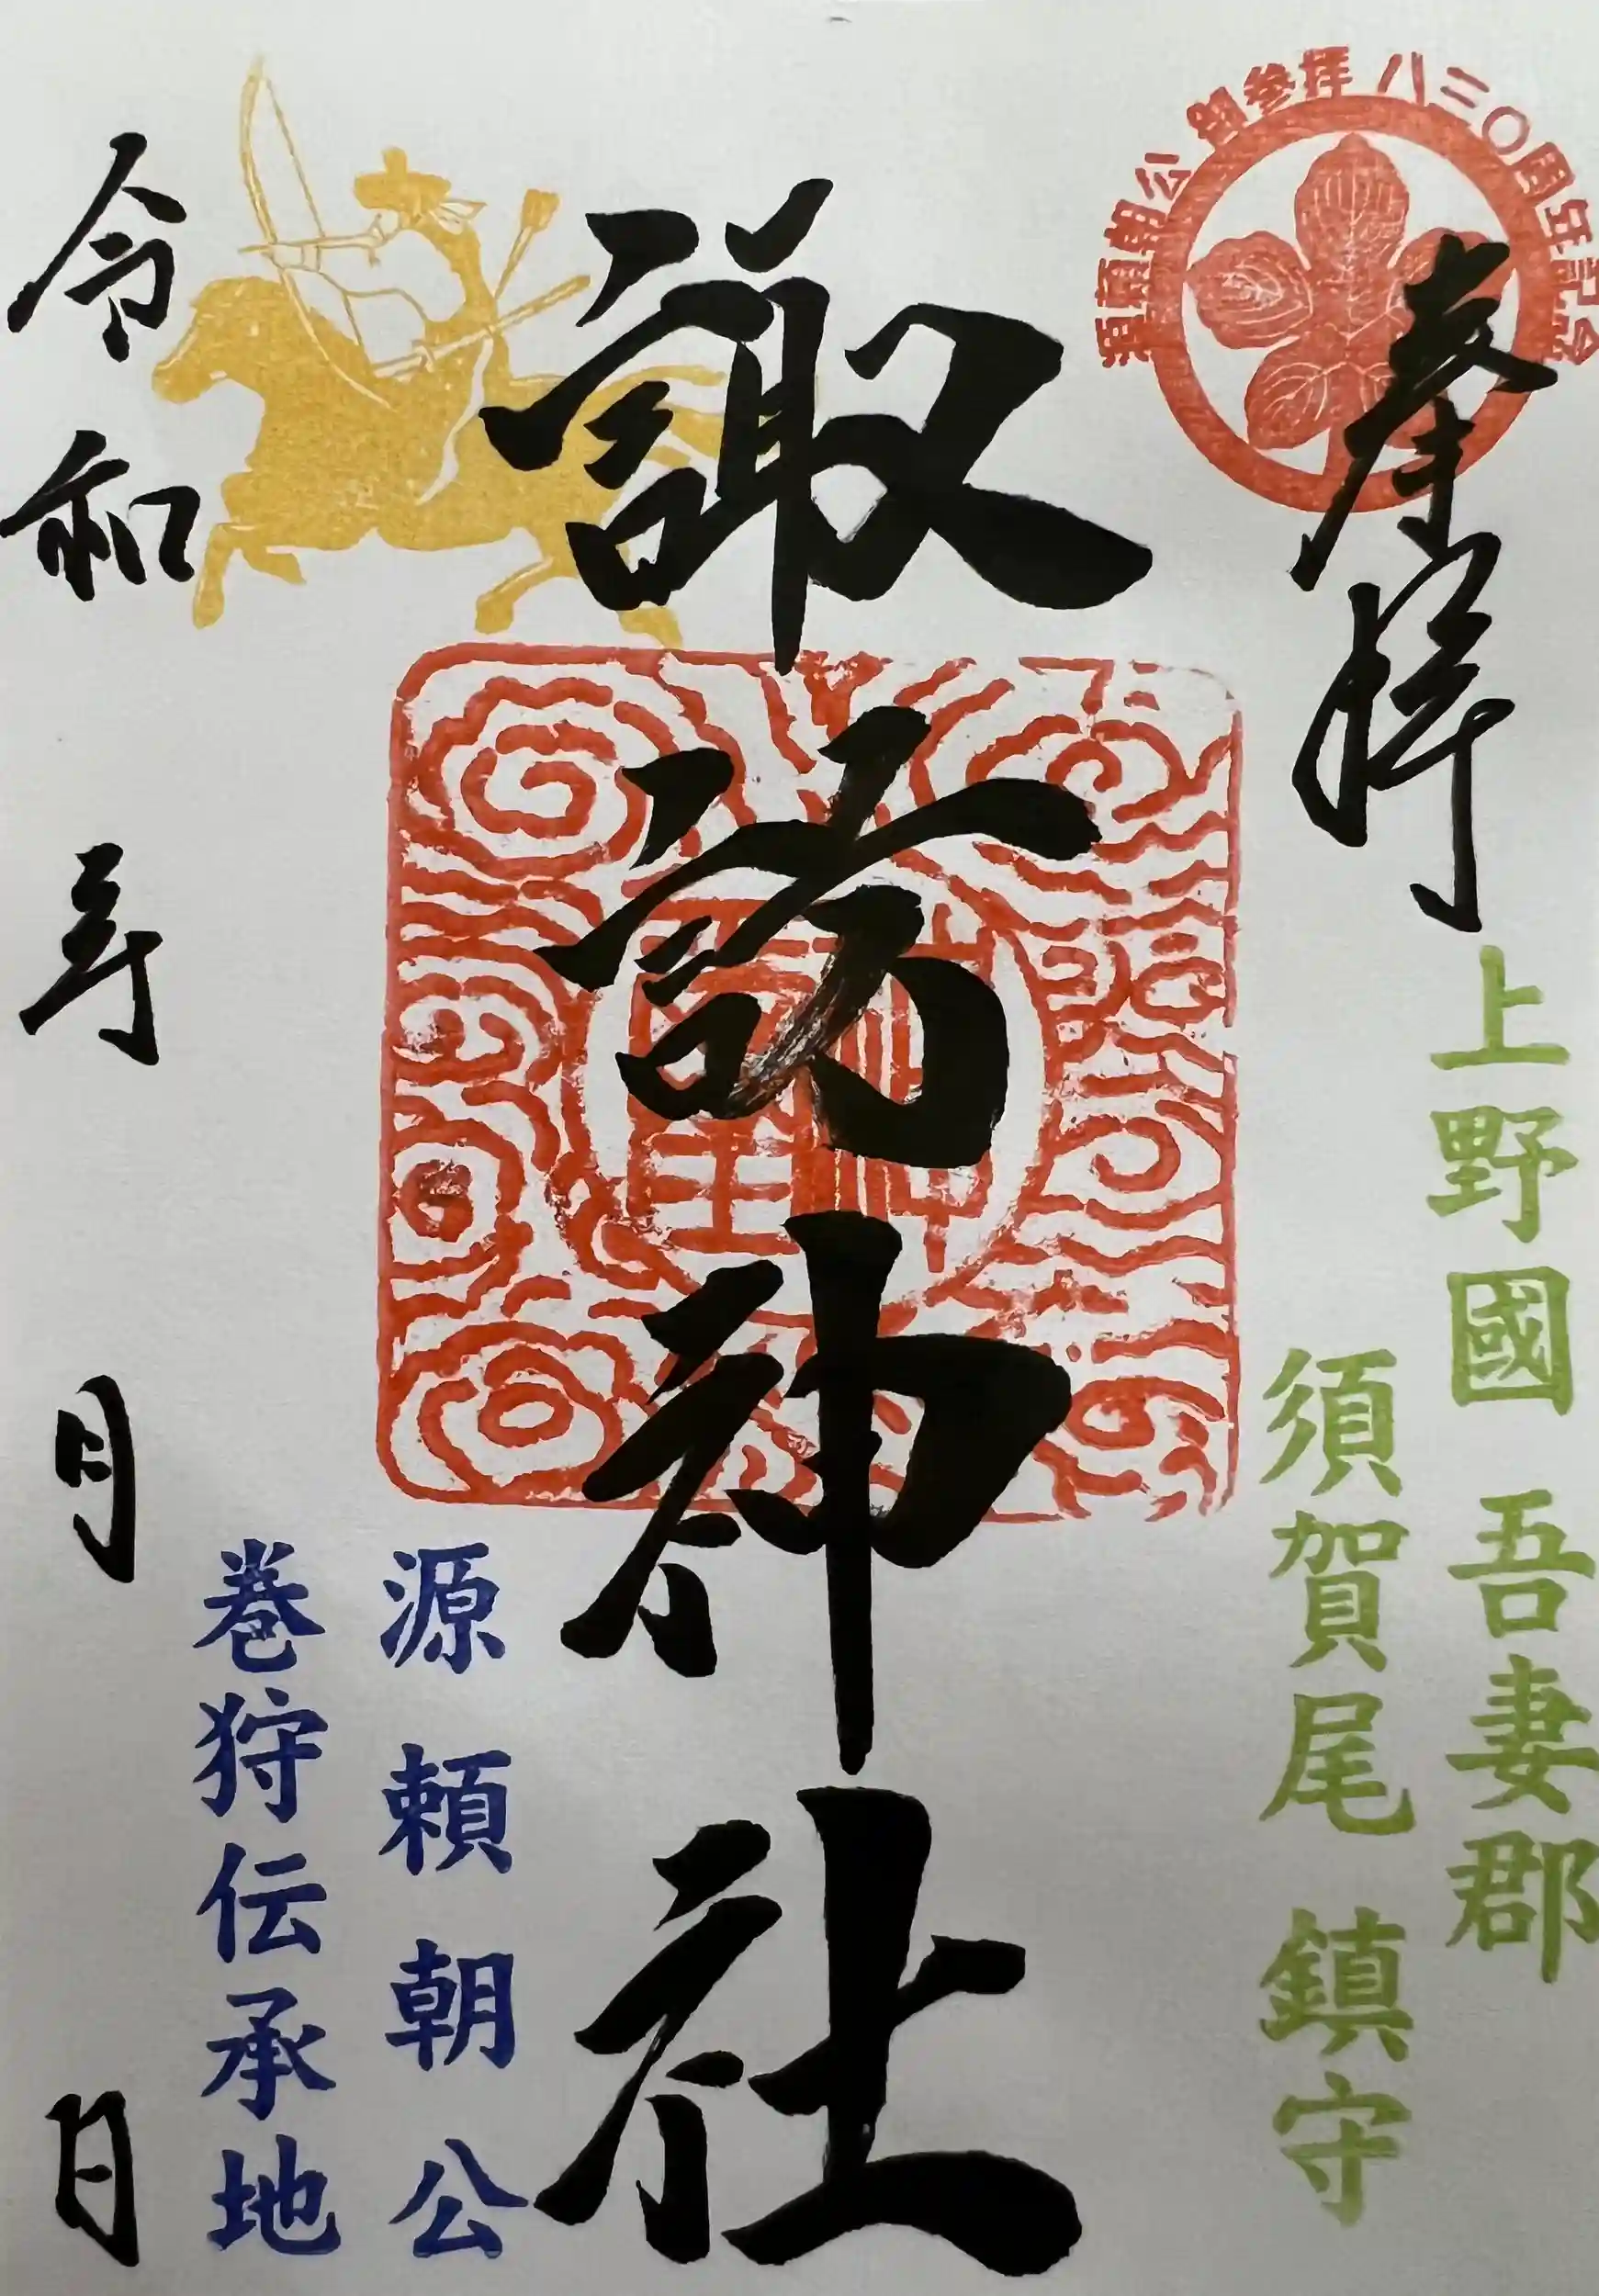 源頼朝公御参拝 八三〇周年記念
奉拝
上野國 吾妻郡
須賀尾 鎮守
諏訪神社
源頼朝公
巻狩伝承地
令和 年 月 日